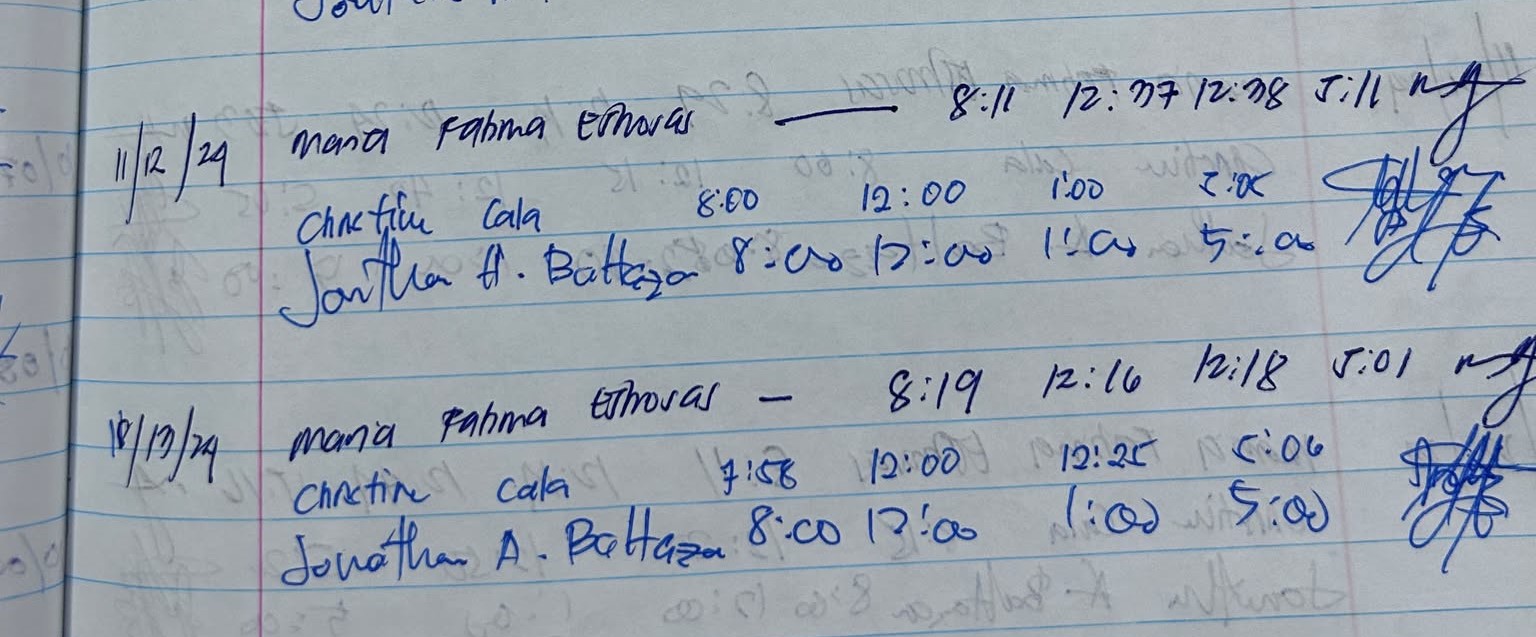 11/12/24 Maria Fatima 8:11 12:37 12:38 5:11
Christine Cala 8:00 12:00 1:00 5:05
Jonathan A. Baltazar 8:00 12:00 1:00 5:00
Maria Fatima — 8:19 12:16 12:18 5:01
/13/24
Christine Cala 7:58 12:00 12:25 5:06
Jonathan A. Baltazar 8:00 12:00 1:00 5:00